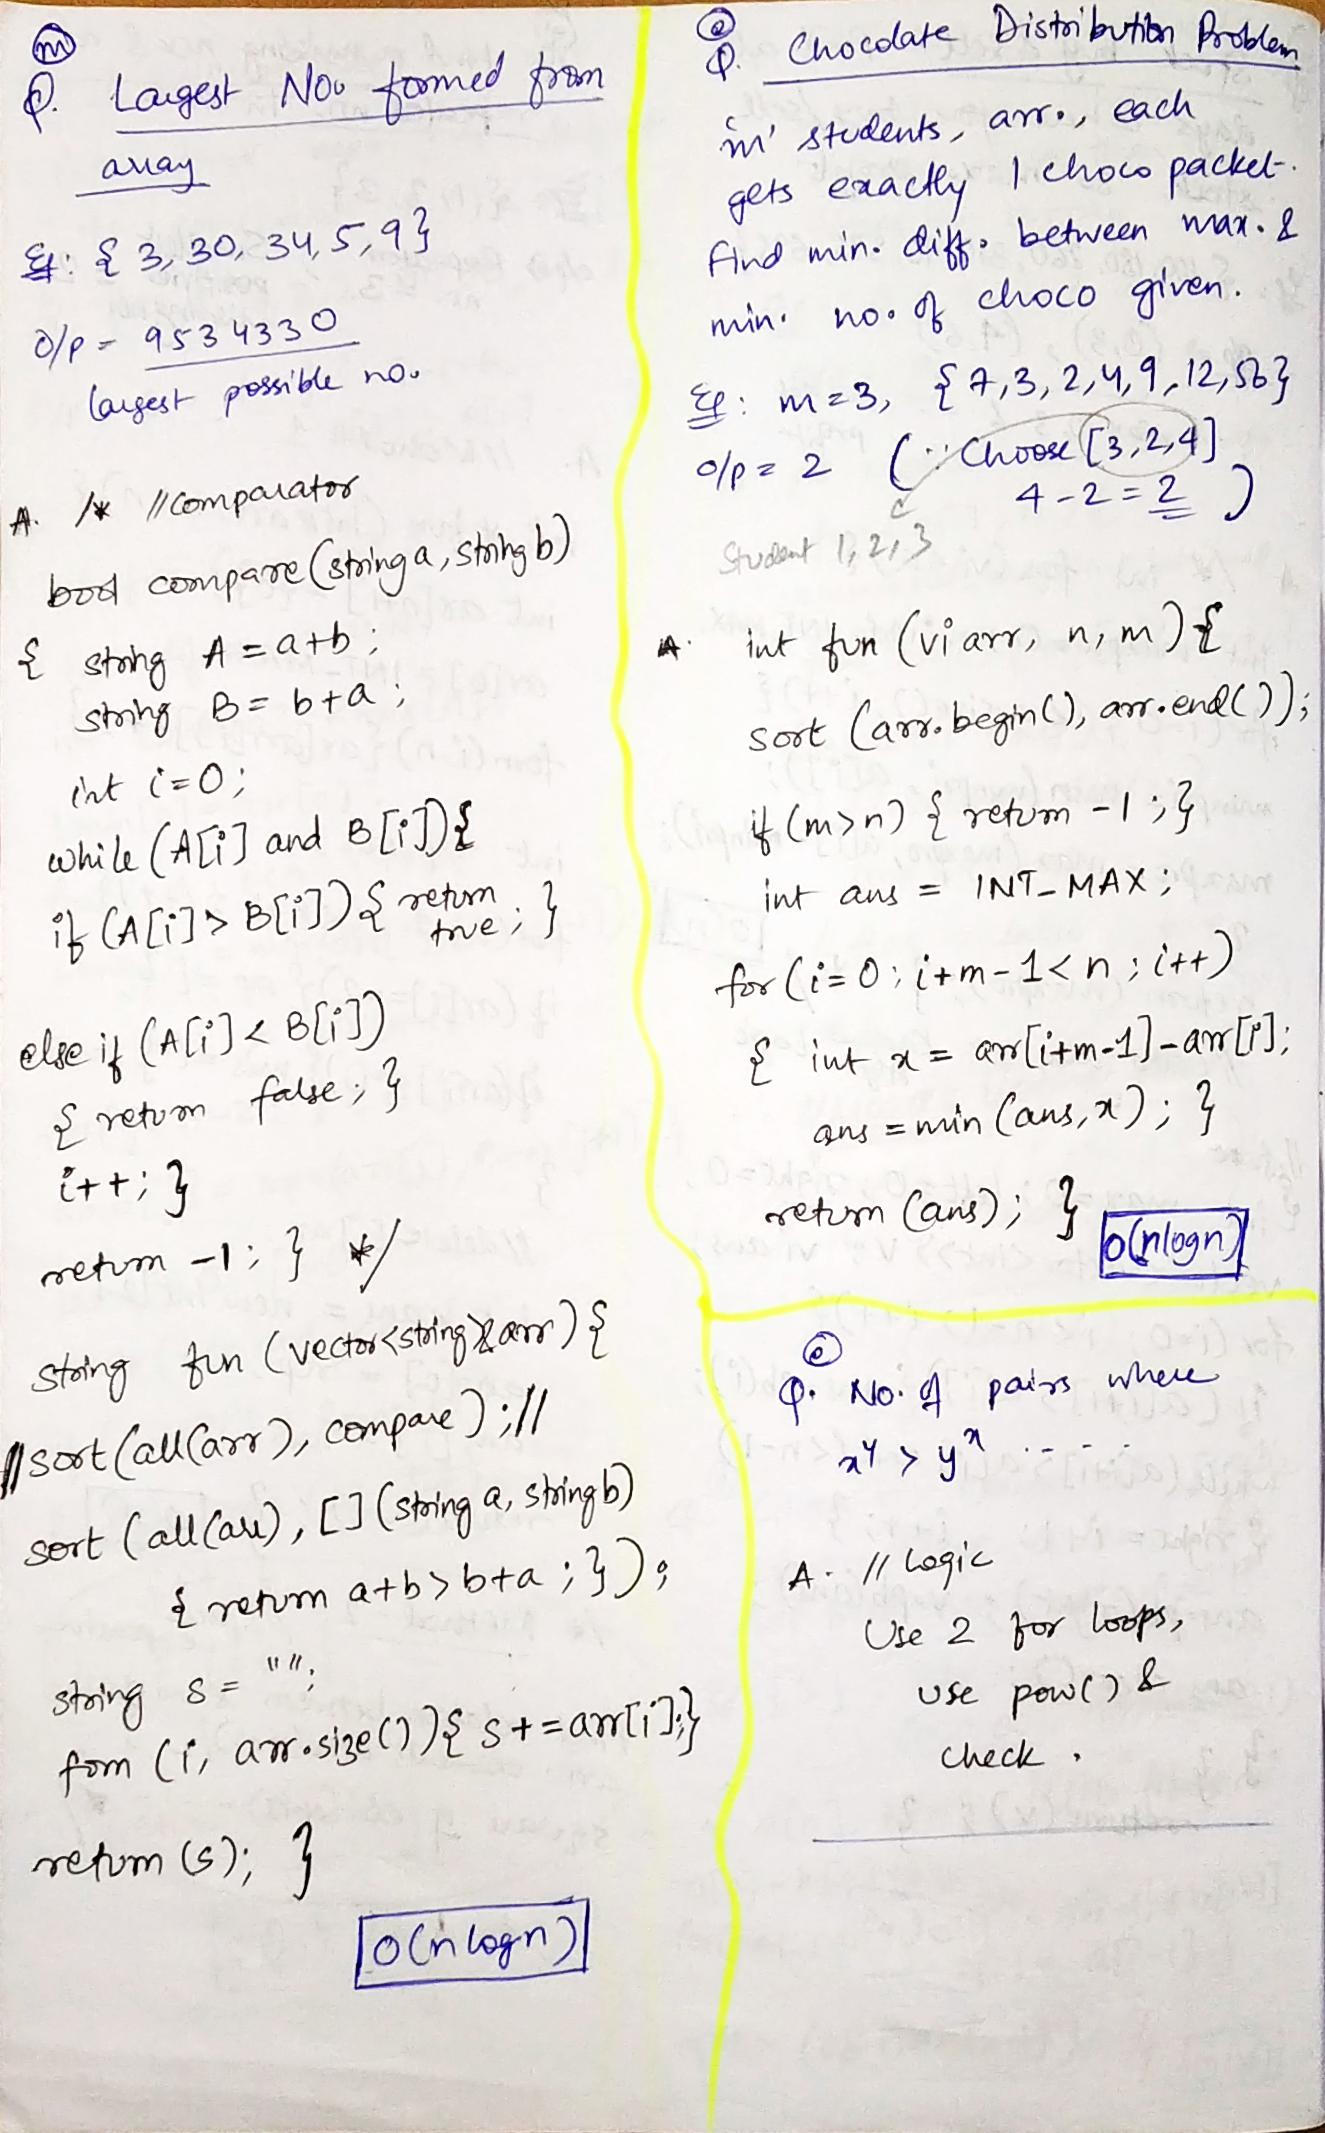 (m)
Q. Largest No. formed from
array
Eg: { 3, 30, 34, 5, 9}
O/p = 9534330
largest possible no.
A. /* //comparator
bool compare(string a, string b)
{ string A = a+b ;
string B = b+a ;
int i=0;
while (A[i] and B[i]){
if (A[i]> B[i]) { return
true ; }
else if (A[i] < B[i])
{ return false ; }
i++; }
return -1 ; } */
string fun (vector<string>&arr) {
//sort (all(arr), compare) ;//
sort (all(arr), [] (string a, string b)
{ return a+b > b+a ; }) ;
string s = "" ;
forn (i, arr.size()) { s+=arr[i];}
return (s); }
O(nlogn)
(e)
Q. Chocolate Distribution Problem
'm' students, arr., each
gets exactly 1 choco packet.
Find min. diff. between max. &
min. no. of choco given.
Eg: m=3, { 7,3,2,4,9,12,56}
o/p = 2 (∵ Choose [3,2,4]
4-2 = 2 )
Student 1,2,3
A. int fun (vi arr, n, m) {
sort (arr.begin(), arr.end());
if (m>n) { return -1 ; }
int ans = INT_MAX ;
for (i=0 ; i+m-1<n ; i++)
{ int x = arr[i+m-1]-arr[i];
ans = min (ans, x) ; }
return (ans) ; }
O(nlogn)
(e)
Q. No. of pairs where
x^y > y^x .....
A. // Logic
Use 2 for loops,
use pow() &
check .